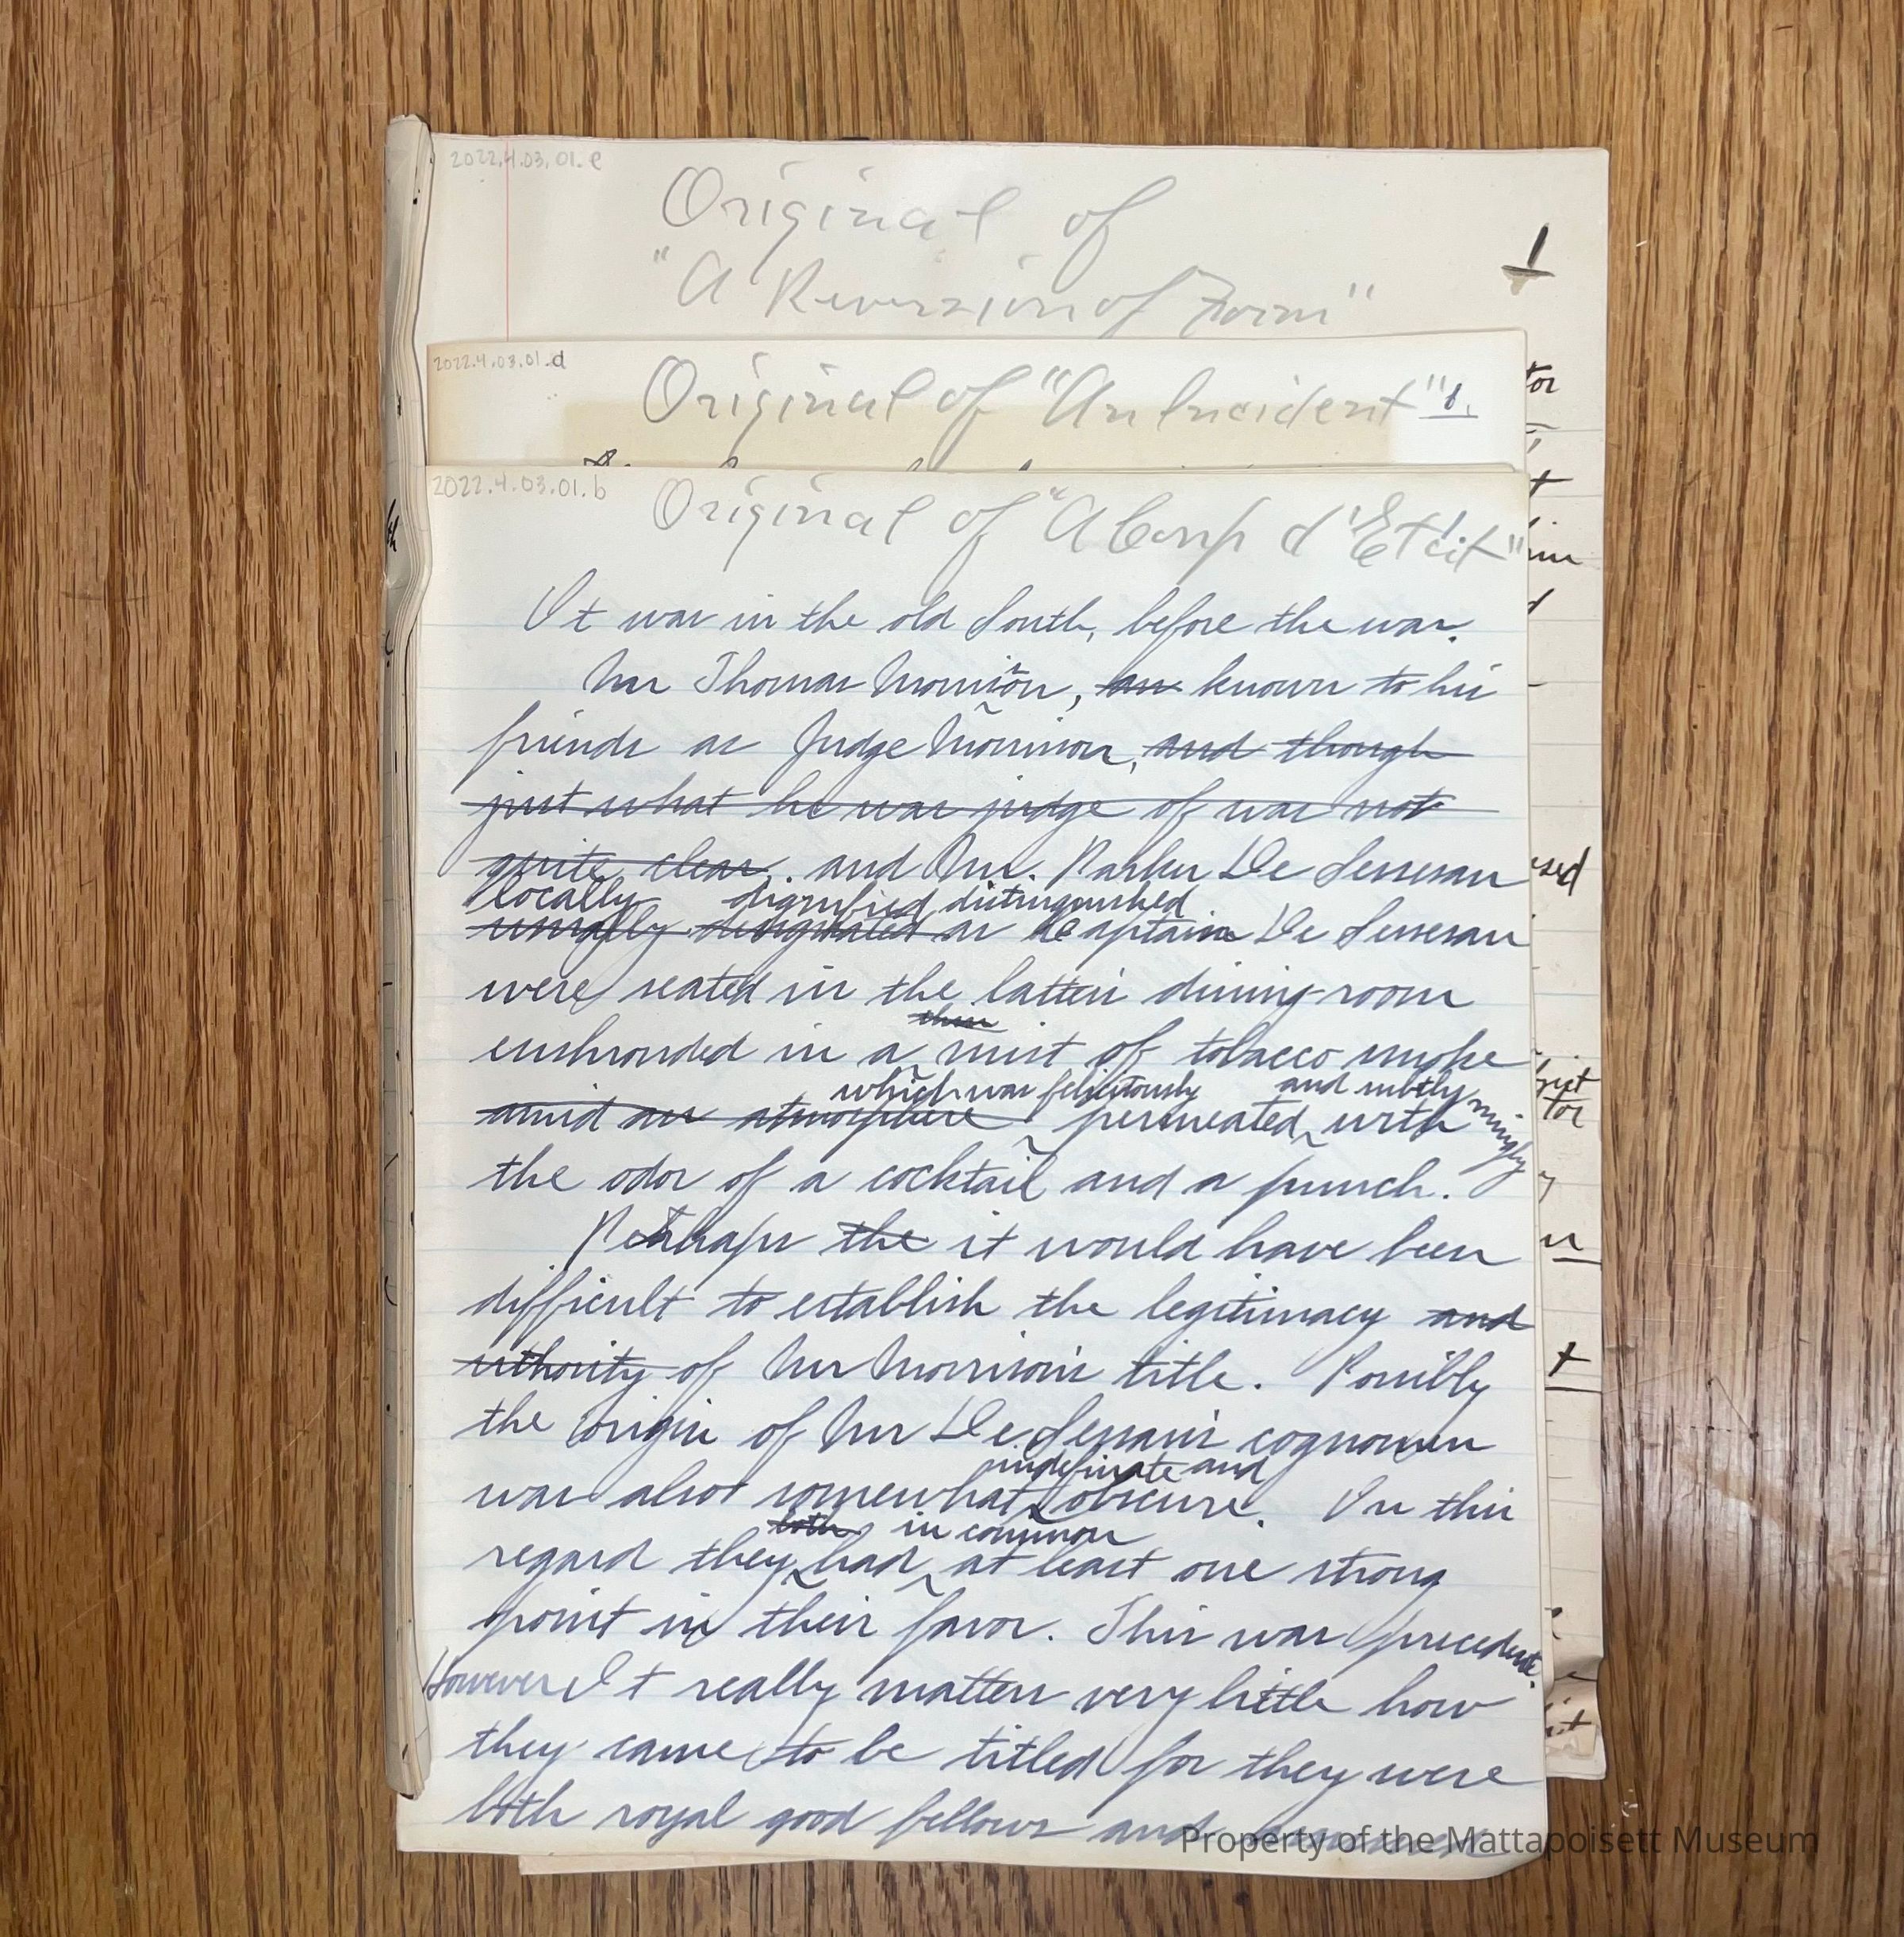 2022.4.03.01.e
Original of
"A Reversion of Form"
1
2022.4.03.01.d
Original of "An Incident" 1.
2022.4.03.01.b
Original of "A Coup d'Etat"
It was in the old South, before the war.
Mr Thomas Morrison, an known to his
friends as Judge Morrison, and though
just what he was judge of was not
quite clear, and Mr. Parker De Sesseran
locally dignified distinguished
usually designated as Captain De Sesseran
were seated in the latter's dining-room
thin
enshrouded in a mist of tobacco smoke
which was felicitously and subtly
amid an atmosphere permeated with mingly
the odor of a cocktail and a punch.
Perhaps the it would have been
difficult to establish the legitimacy and
authority of Mr Morrison's title. Possibly
the origin of Mr De Sessaru's cognomen
indefinate and
was also somewhat obscure. In this
both in common
regard they had at least one strong
point in their favor. This was precedent.
However It really matters very little how
they came to be titled for they were
both royal good fellows and
Property of the Mattapoisett Museum